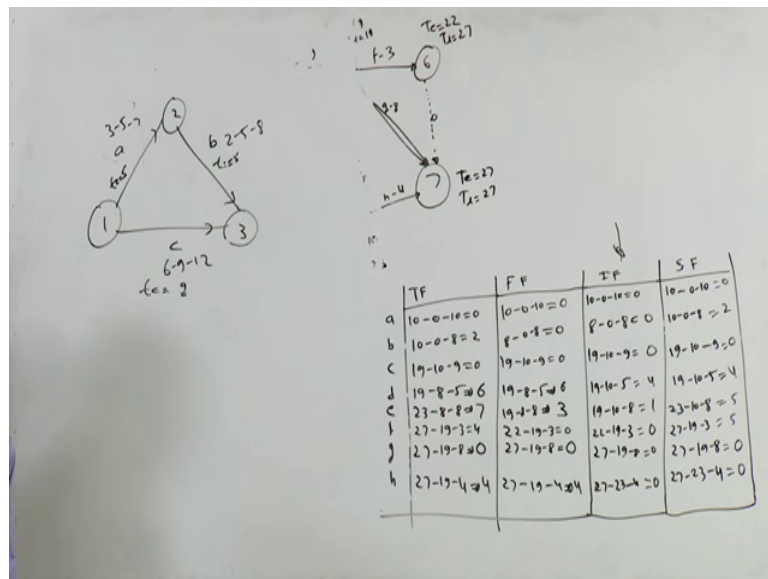 Te=22
TL=27
f-3
6
g-8
0
7
Te=27
TL=27
h-4
2
3-5-7
a
te=5
b 2-5-8
te=5
1
3
c
6-9-12
te= 9
TF FF IF SF
a 10-0-10=0 10-0-10=0 10-0-10=0 10-0-10=0
b 10-0-8=2 8-0-8=0 8-0-8=0 10-0-8=2
c 19-10-9=0 19-10-9=0 19-10-9=0 19-10-9=0
d 19-8-5=6 19-8-5=6 19-10-5=4 19-10-5=4
e 23-8-8=7 19-8-8=3 19-10-8=1 23-10-8=5
f 27-19-3=4 22-19-3=0 22-19-3=0 27-19-3=5
g 27-19-8=0 27-19-8=0 27-19-8=0 27-19-8=0
h 27-19-4=4 27-19-4=4 27-23-4=0 27-23-4=0